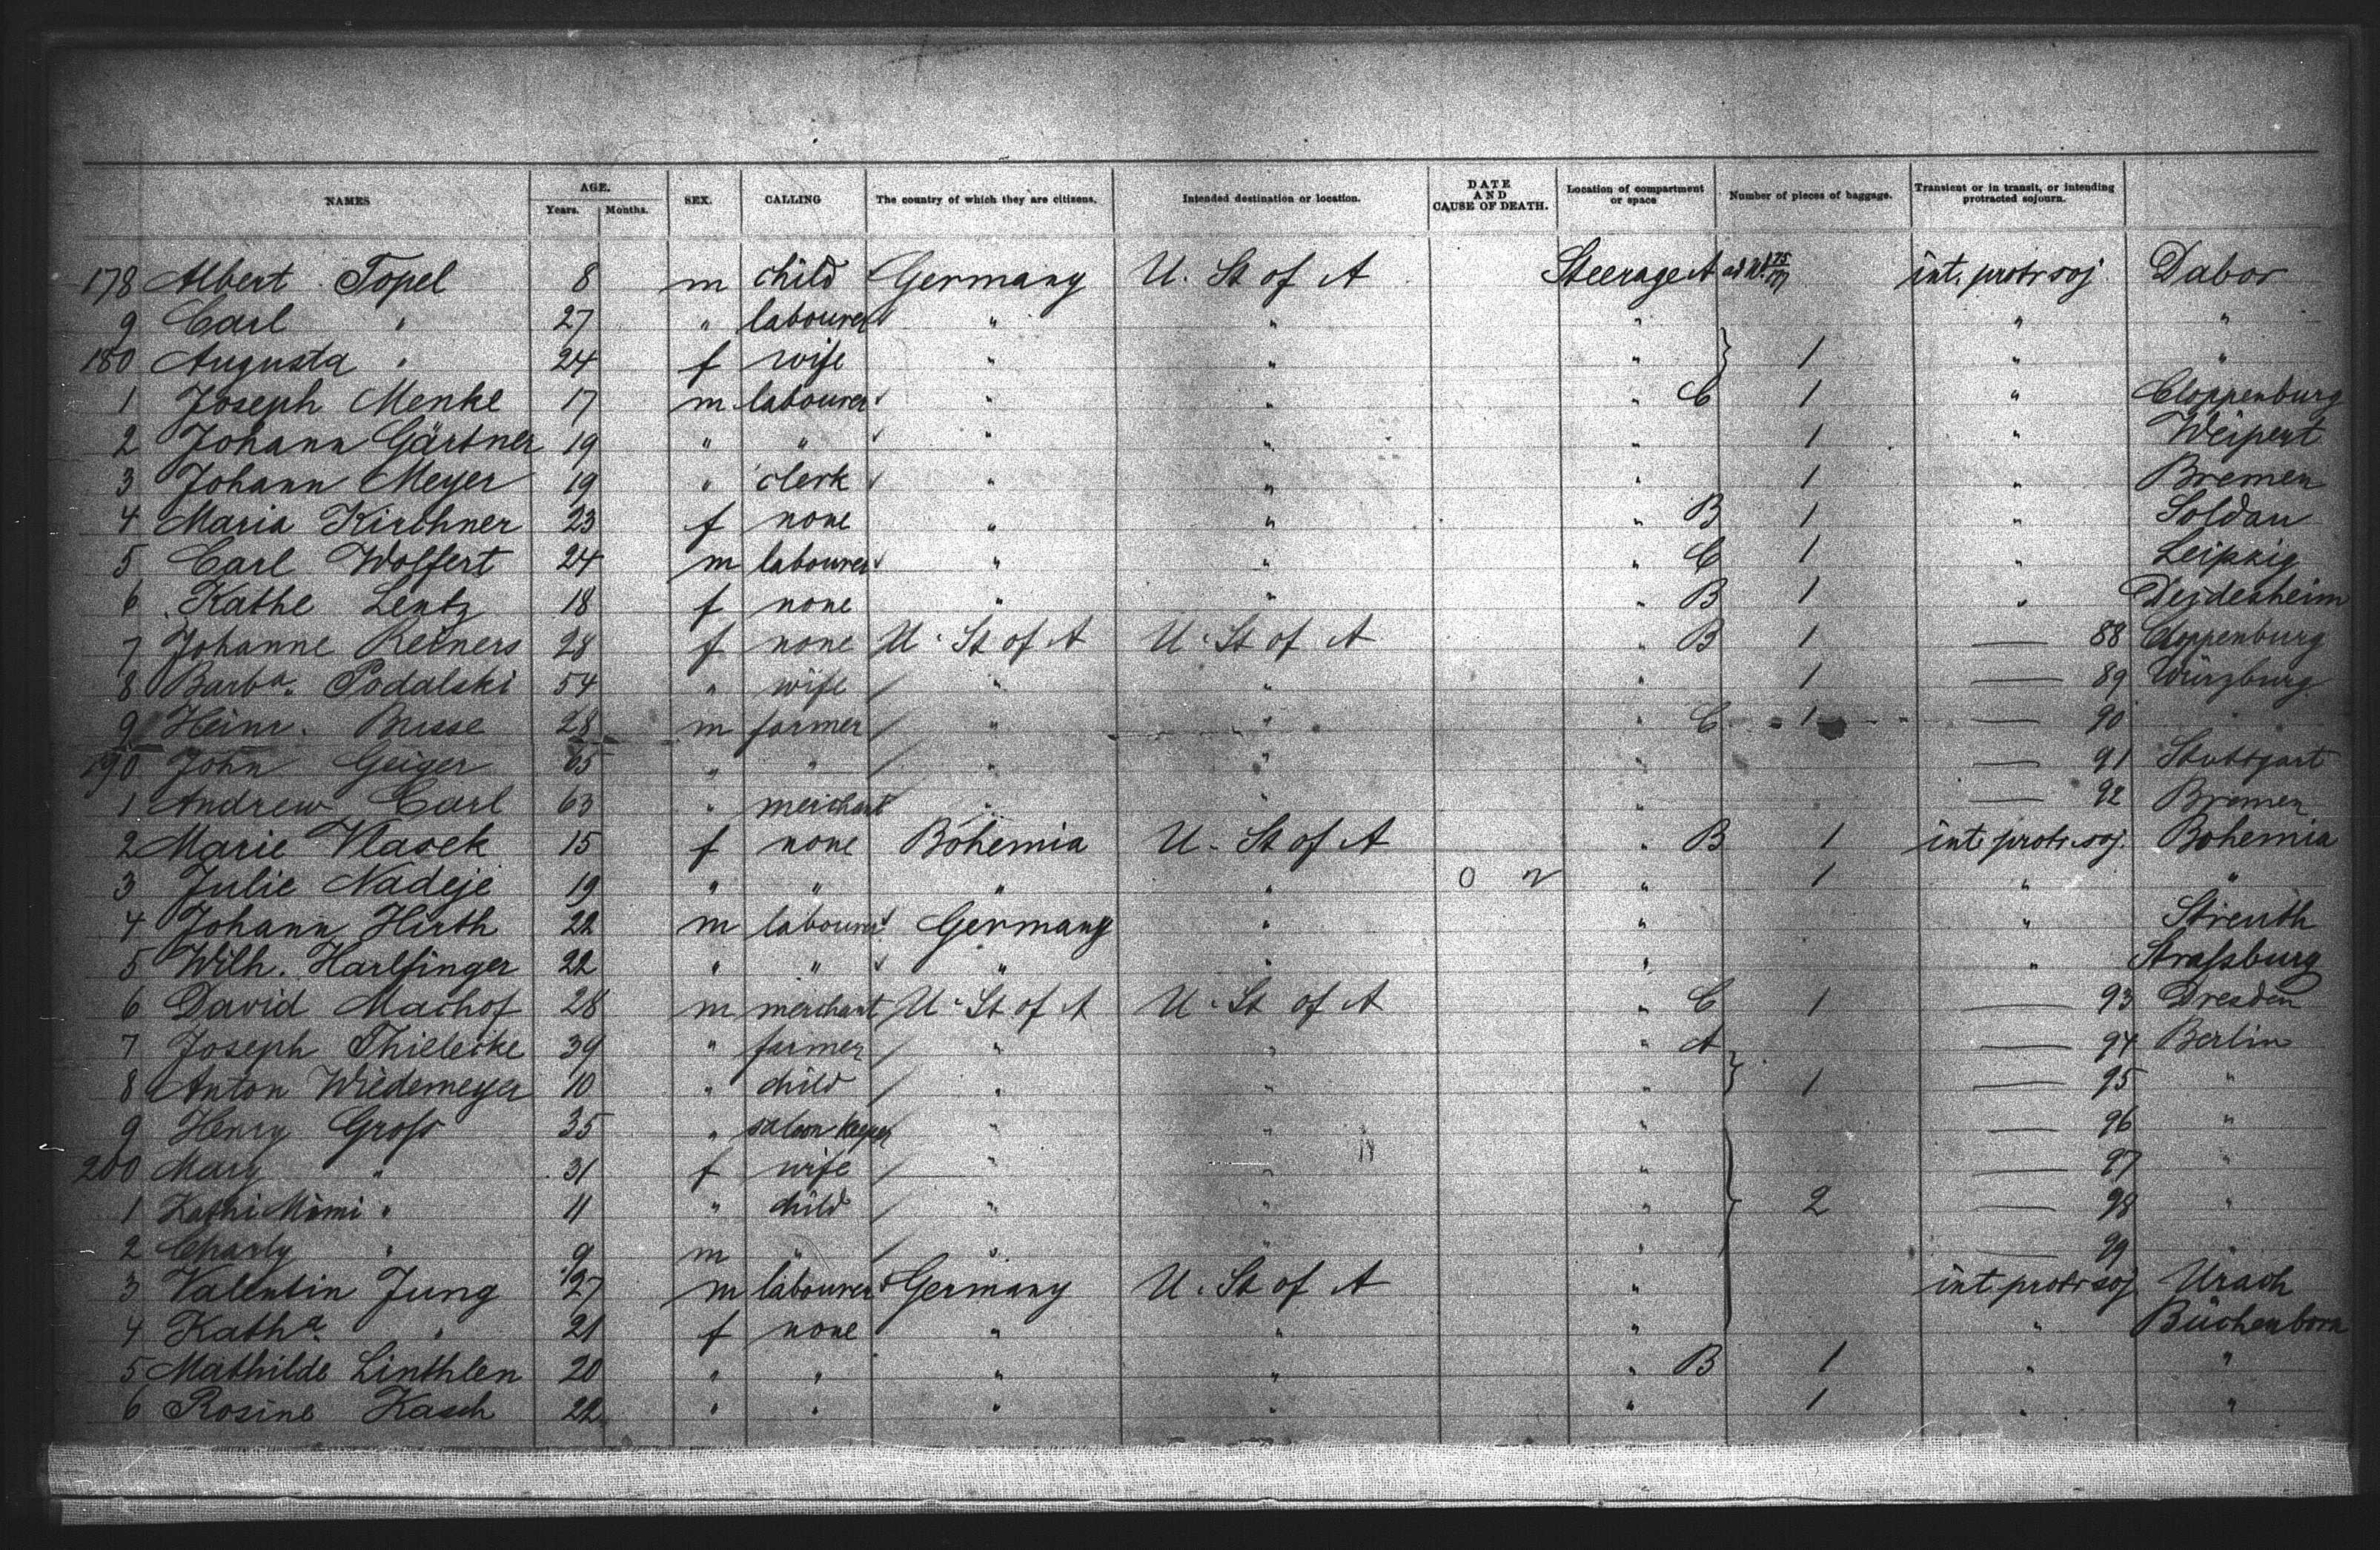 NAMES AGE. Years. Months. SEX. CALLING The country of which they are citizens. Intended destination or location. DATE AND CAUSE OF DEATH. Location of compartment or space Number of pieces of baggage. Transient or in transit, or intending protracted sojourn.
178 Albert Topel 8 m child Germany U. St of A Steerage A int. protr soj Dabor
9 Carl " 27 " labourer " " " " "
180 Augusta " 24 f wife " " " 1 " "
1 Joseph Menke 17 m labourer " " " C 1 " Cloppenburg
2 Johann Gärtner 19 " " " " " 1 " Weipert
3 Johann Meyer 19 " clerk " " " 1 " Bremen
4 Maria Kirchner 23 f none " " " B 1 " Soldau
5 Carl Wolfert 24 m labourer " " " C 1 " Leipzig
6 Kathe Lentz 18 f none " " " B 1 " Deidesheim
7 Johanne Reiners 28 f none U. St of A U. St of A " B 1 — 88 Cloppenburg
8 Barba. Podalski 54 " wife " " " 1 — 89 Würzburg
9 Heinr. Busse 28 m farmer " " " C 1 — 90
190 John Geiger 65 " " " " " — 91 Stuttgart
1 Andrew Carl 63 " merchant " " " — 92 Bremen
2 Marie Vlasek 15 f none Bohemia U. St of A " B 1 int protr. soj. Bohemia
3 Julie Nadeje 19 " " " " " 1 " "
4 Johann Hirth 22 m labourer Germany " " " Streuth
5 Wilh. Harlfinger 22 " " " " " " Straßburg
6 David Machof 28 m merchant U. St of A U. St of A " C 1 — 93 Dresden
7 Joseph Thielecke 39 " farmer " " " A — 94 Berlin
8 Anton Wiedemeyer 10 " child " " " 1 — 95 "
9 Henry Groß 35 " saloon keeper " " " — 96 "
200 Mary " 31 f wife " " " — 97 "
1 Kathi Mimi " 11 " child " " " 2 — 98 "
2 Charly " 9 m " " " " — 99
3 Valentin Jung 27 m labourer Germany U. St of A " int protr soj Urach
4 Katha. " 21 f none " " " " Büchenbron
5 Mathilde Linthlen 20 " " " " " B 1 " "
6 Rosine Kasch 22 " " " " " 1 " "